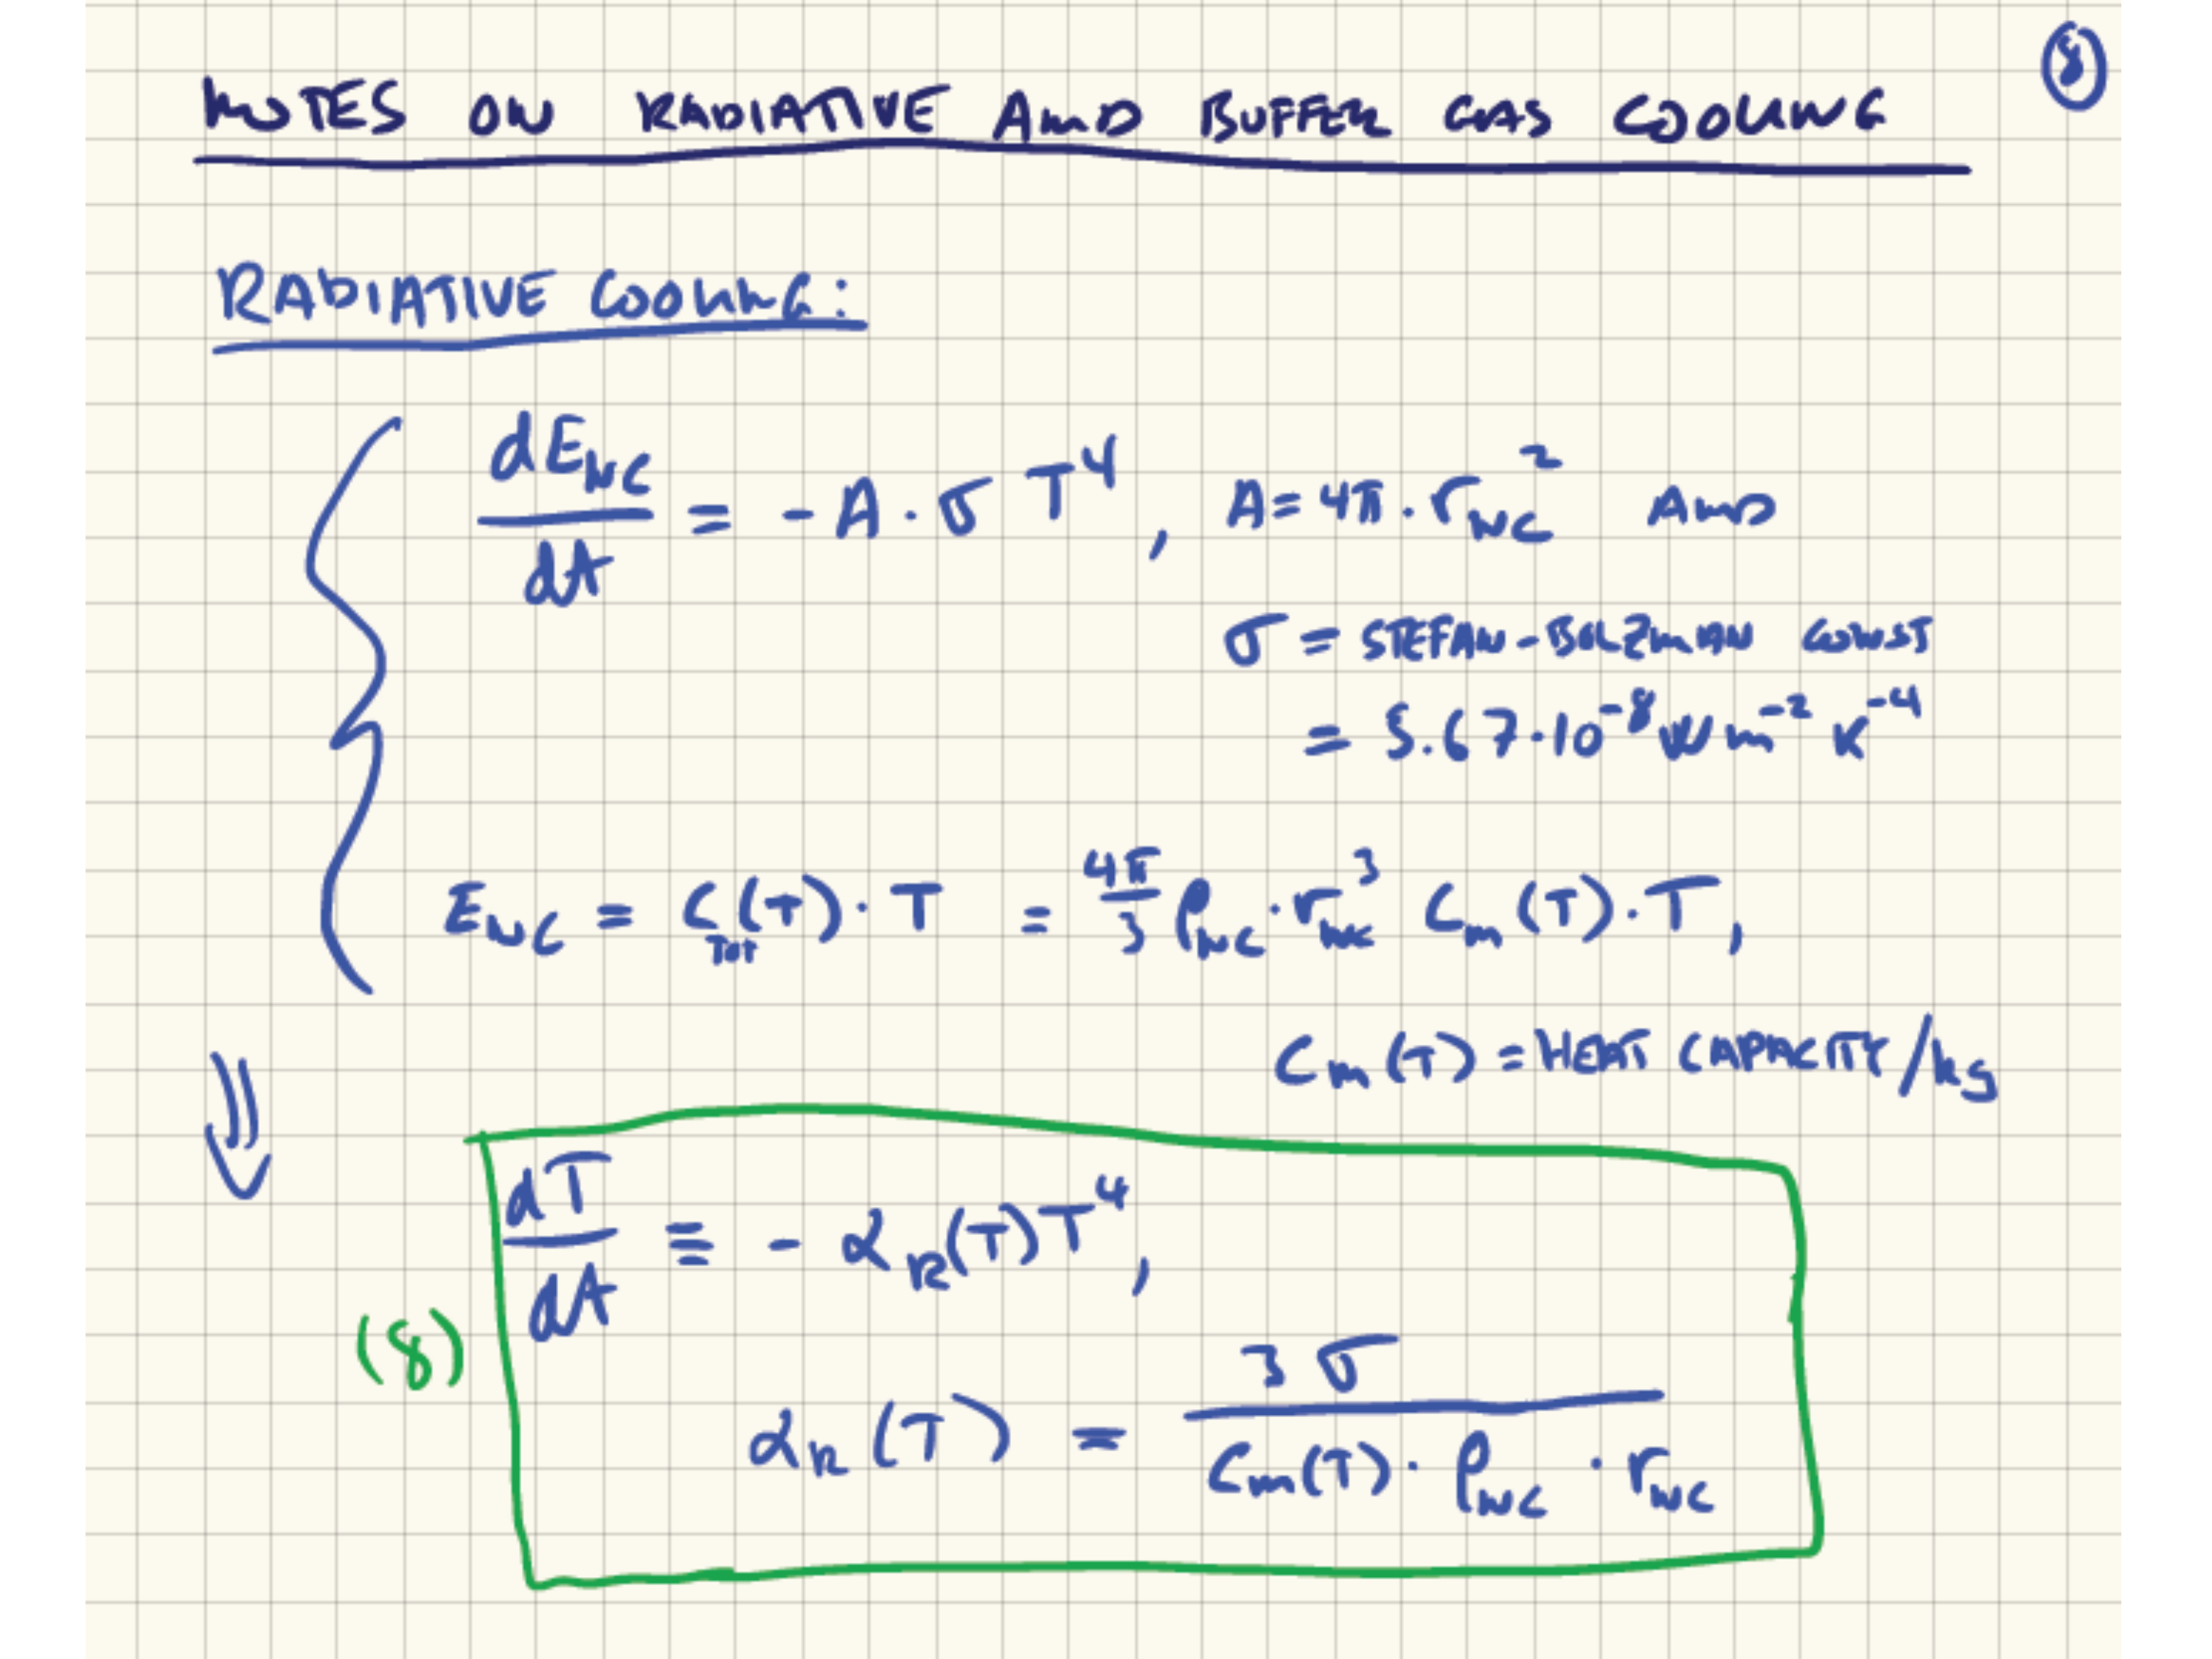 NOTES ON RADIATIVE AND BUFFER GAS COOLING
8
RADIATIVE COOLING:
dE_NC/dt = - A · σ T⁴ , A = 4π · r_NC² AND
σ = STEFAN-BOLZMAN CONST
= 5.67 · 10⁻⁸ W m⁻² K⁻⁴
E_NC = C_TOT(T) · T = 4π/3 ρ_NC · r_NC³ C_m(T) · T ,
C_m(T) = HEAT CAPACITY/kg
⇓
dT/dt ≡ - α_R(T) T⁴ ,
(8)
α_R(T) = 3σ / C_m(T) · ρ_NC · r_NC